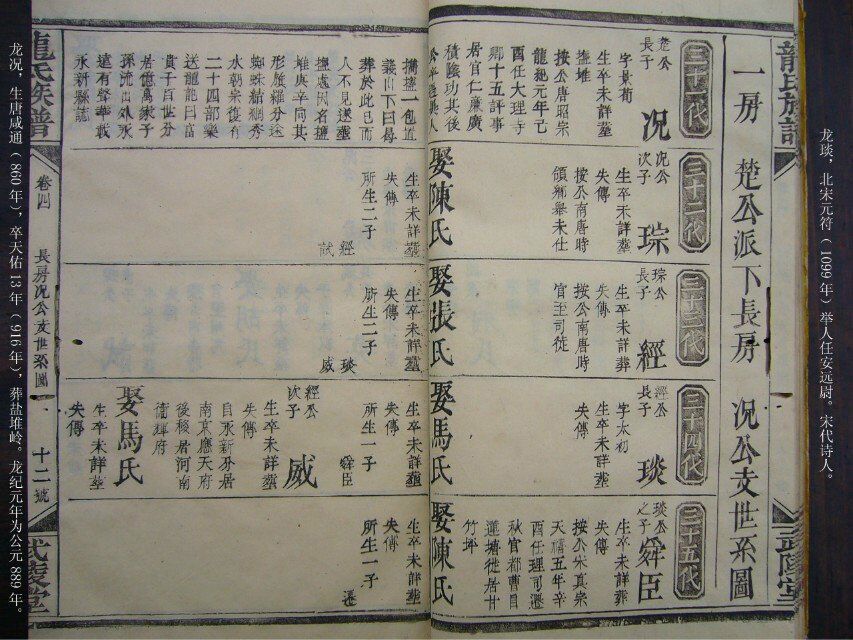 龙琰，北宋元符（1099年）举人任安远尉。宋代诗人。
龍氏族譜
武陵堂
一房　楚公派下長房　况公支世系圖
三十一代
楚公
長子
况
字景荀
生卒未詳葬
鹽堆
按公唐昭宗
龍紀元年己
酉任大理寺
鄉十五評事
居官仁廉廣
積陰功其後
三十二代
况公
次子
琮
生卒未詳葬
失傳
按公南唐時
領鄉舉未仕
娶陳氏
三十三代
琮公
長子
經
生卒未詳葬
失傳
按公南唐時
官至司徒
娶張氏
三十四代
經公
長子
琰
字太初
生卒未詳塟
失傳
娶馬氏
三十五代
琰公
之子
舜臣
生卒未詳葬
失傳
按公宋真宗
天禧五年辛
酉任理司遷
秋官都曹目
蓮塘徙居甘
竹坪
娶陳氏
擕鹽一包置
義山下曰毋
葬於此已而
人不見遂塟
鹽處因名鹽
堆庚辛向其
形旗羅分遠
蜘蛛結網秀
水朝宗復有
二十四部樂
送龍龍曰富
貴千百世分
居億萬家子
孫流出外永
遠有聲華載
永新縣誌
生卒未詳塟
失傳
所生二子
經
試
生卒未詳塟
失傳
所生二子
琰
威
生卒未詳塟
失傳
所生一子
舜臣
經公
次子
威
生卒未詳塟
失傳
自永新分居
南京應天府
後移居河南
衛輝府
娶馬氏
生卒未詳塟
失傳
生卒未詳塟
失傳
所生一子
遷
龍氏族譜
卷四
長房况公支世系圖
十二號
武陵堂
龙况，生唐咸通（860年），卒天佑13年（916年），葬盐堆岭。龙纪元年为公元889年。